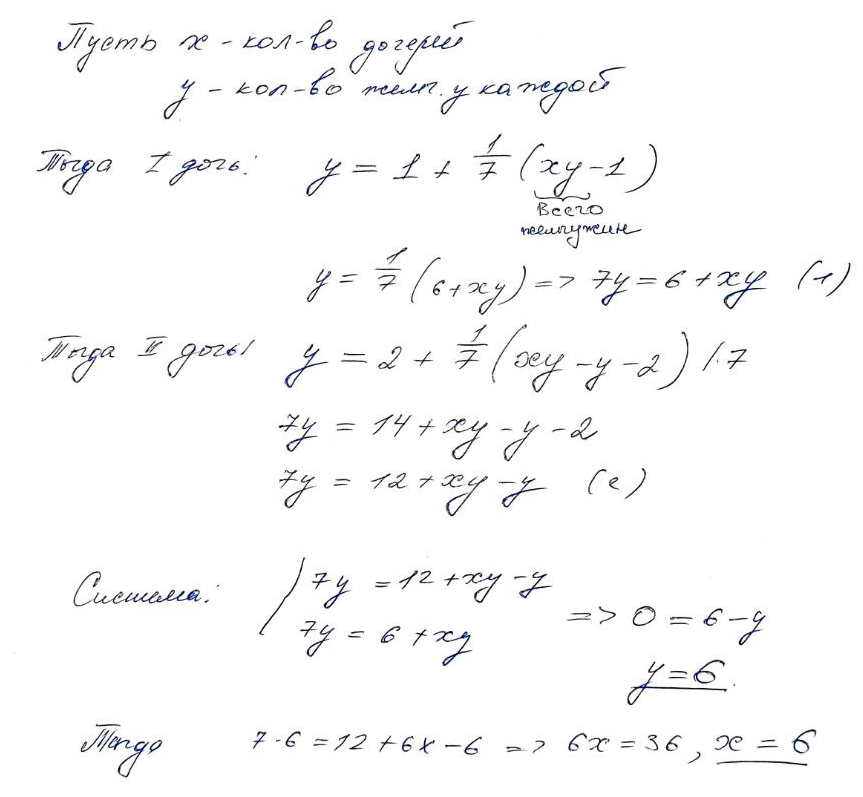 Пусть x - кол-во дочерей
y - кол-во жемч. у каждой
Тогда I дочь: y = 1 + 1/7 (xy - 1)
Всего
жемчужин
y = 1/7 (6 + xy) => 7y = 6 + xy (1)
Тогда II дочь: y = 2 + 1/7 (xy - y - 2) /·7
7y = 14 + xy - y - 2
7y = 12 + xy - y (2)
Система: 7y = 12 + xy - y
7y = 6 + xy => 0 = 6 - y
y = 6.
Тогда 7·6 = 12 + 6x - 6 => 6x = 36, x = 6